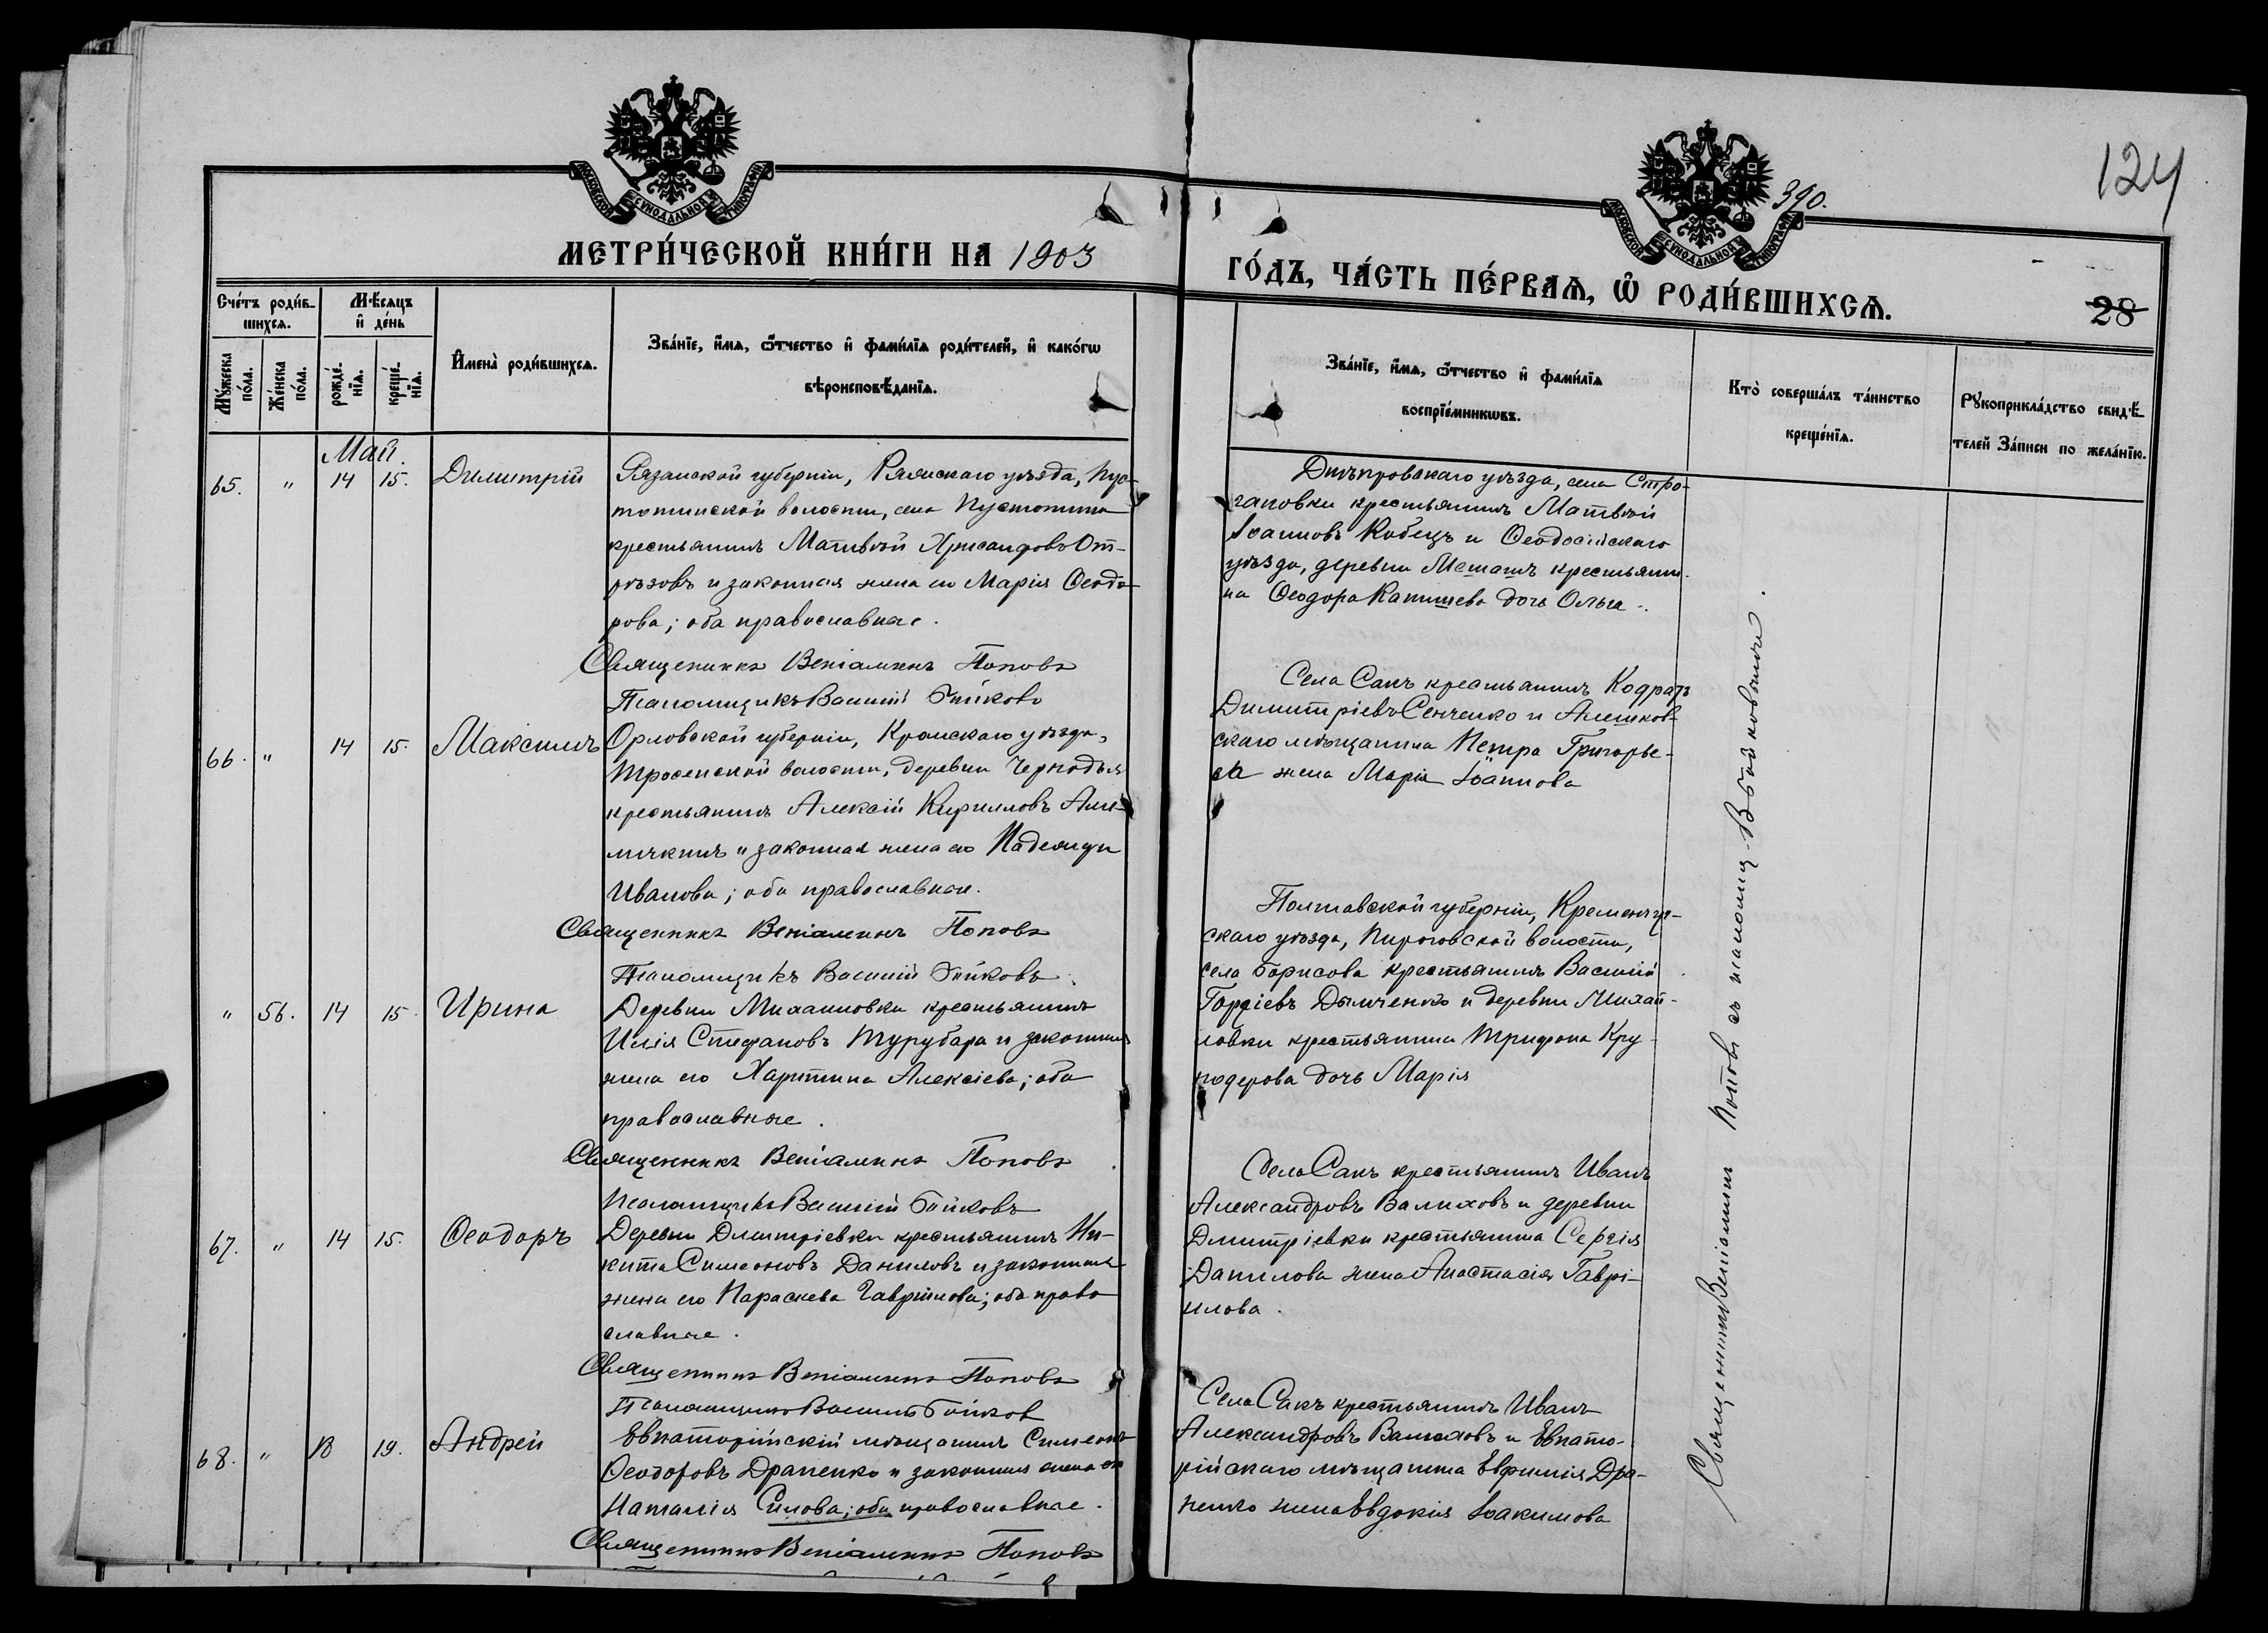 124
390.
МОСКОВСКОЙ СѴНОДАЛЬНОЙ ТИПОГРАФІИ
МОСКОВСКОЙ СѴНОДАЛЬНОЙ ТИПОГРАФІИ
МЕТРИ́ЧЕСКОЙ КНИ́ГИ НА 1903
ГО́ДЪ, ЧА́СТЬ ПЕ́РВАѦ, Ѽ РОДИ́ВШИХСѦ.
28
Сче́тъ роди́в-
шихсѧ.
Мꙋ́жеска
по́ла.
Же́нска
по́ла.
Мѣ́сѧцъ
и҆ де́нь
рожде́-
нїѧ.
креще́-
нїѧ.
И҆мена̀ роди́вшихсѧ.
Зва́нїе, и҆́мѧ, ѻ҆́тчество и҆ фами́лїѧ роди́телей, и҆ како́гѡ
вѣроисповѣ́данїѧ.
Зва́нїе, и҆́мѧ, ѻ҆́тчество и҆ фами́лїѧ
воспрїе́мникѡвъ.
Кто̀ соверша́лъ та́инство
креще́нїѧ.
Рꙋкоприкла́дство свидѣ́-
телей За́писи по жела́нїю.
Май.
65. " 14 15. Димитрій
Рязанской губерніи, Ряжскаго уѣзда, Пус-
тотинской волости, села Пустотина
крестьянинъ Матвѣй Хрисанфовъ От-
рѣзовъ и законная жена его Марія Ѳеодо-
рова; оба православные.
Священникъ Веніаминъ Поповъ
Псаломщикъ Василій Бойковъ
Днѣпровскаго уѣзда, села Стро-
гановки крестьянинъ Матвѣй
Іоанновъ Кобецъ и Ѳеодосійскаго
уѣзда, деревни крестьяни-
на Ѳеодора дочь Ольга.
66. " 14 15. Максимъ
Орловской губерніи, Кромскаго уѣзда,
Тросенской волости, деревни Чернодья
крестьянинъ Алексій Кирилловъ Але-
и законная жена его Надежда
Иванова; оба православные.
Священникъ Веніаминъ Поповъ
Псаломщикъ Василій Бойковъ
Села Сакъ крестьянинъ Кодратъ
Димитріевъ Сенченко и Алешков-
скаго мѣщанина Петра Григорье-
ва жена Марія Іоаннова
" 56. 14 15 Ирина
Деревни Михайловки крестьянинъ
Илія Стефановъ Турубара и законная
жена его Харитина Алексіева; оба
православные.
Священникъ Веніаминъ Поповъ
Псаломщикъ Василій Бойковъ
Полтавской губерніи, Кременчуг-
скаго уѣзда, Пироговской волости,
села Борисова крестьянинъ Василій
Гордіевъ Дымченко и деревни Михай-
ловки крестьянина Трифона Кру-
подерова дочь Марія
67. " 14 15. Ѳеодоръ
Деревни Дмитріевки крестьянинъ Ни-
кита Симеоновъ Даниловъ и законная
жена его Параскева Гавріилова; оба право-
славные.
Священникъ Веніаминъ Поповъ
Псаломщикъ Василій Бойков
Села Сакъ крестьянинъ Иванъ
Александровъ Валиховъ и деревни
Дмитріевки крестьянина Сергія
Данилова жена Анастасія Гаврі-
илова.
68. " 18 19. Андрей
Евпаторійскій мѣщанинъ Симеонъ
Ѳеодоровъ Драпенко и законная жена его
Наталія Силова; оба православные.
Священникъ Веніаминъ Поповъ
Села Сакъ крестьянинъ Иванъ
Александровъ Валиховъ и Евпато-
рійскаго мѣщанина Евфимія Дра-
пенко жена Евдокія Іоакимова
Священникъ Веніаминъ Поповъ съ псаломщ. Вас. Бойковымъ.